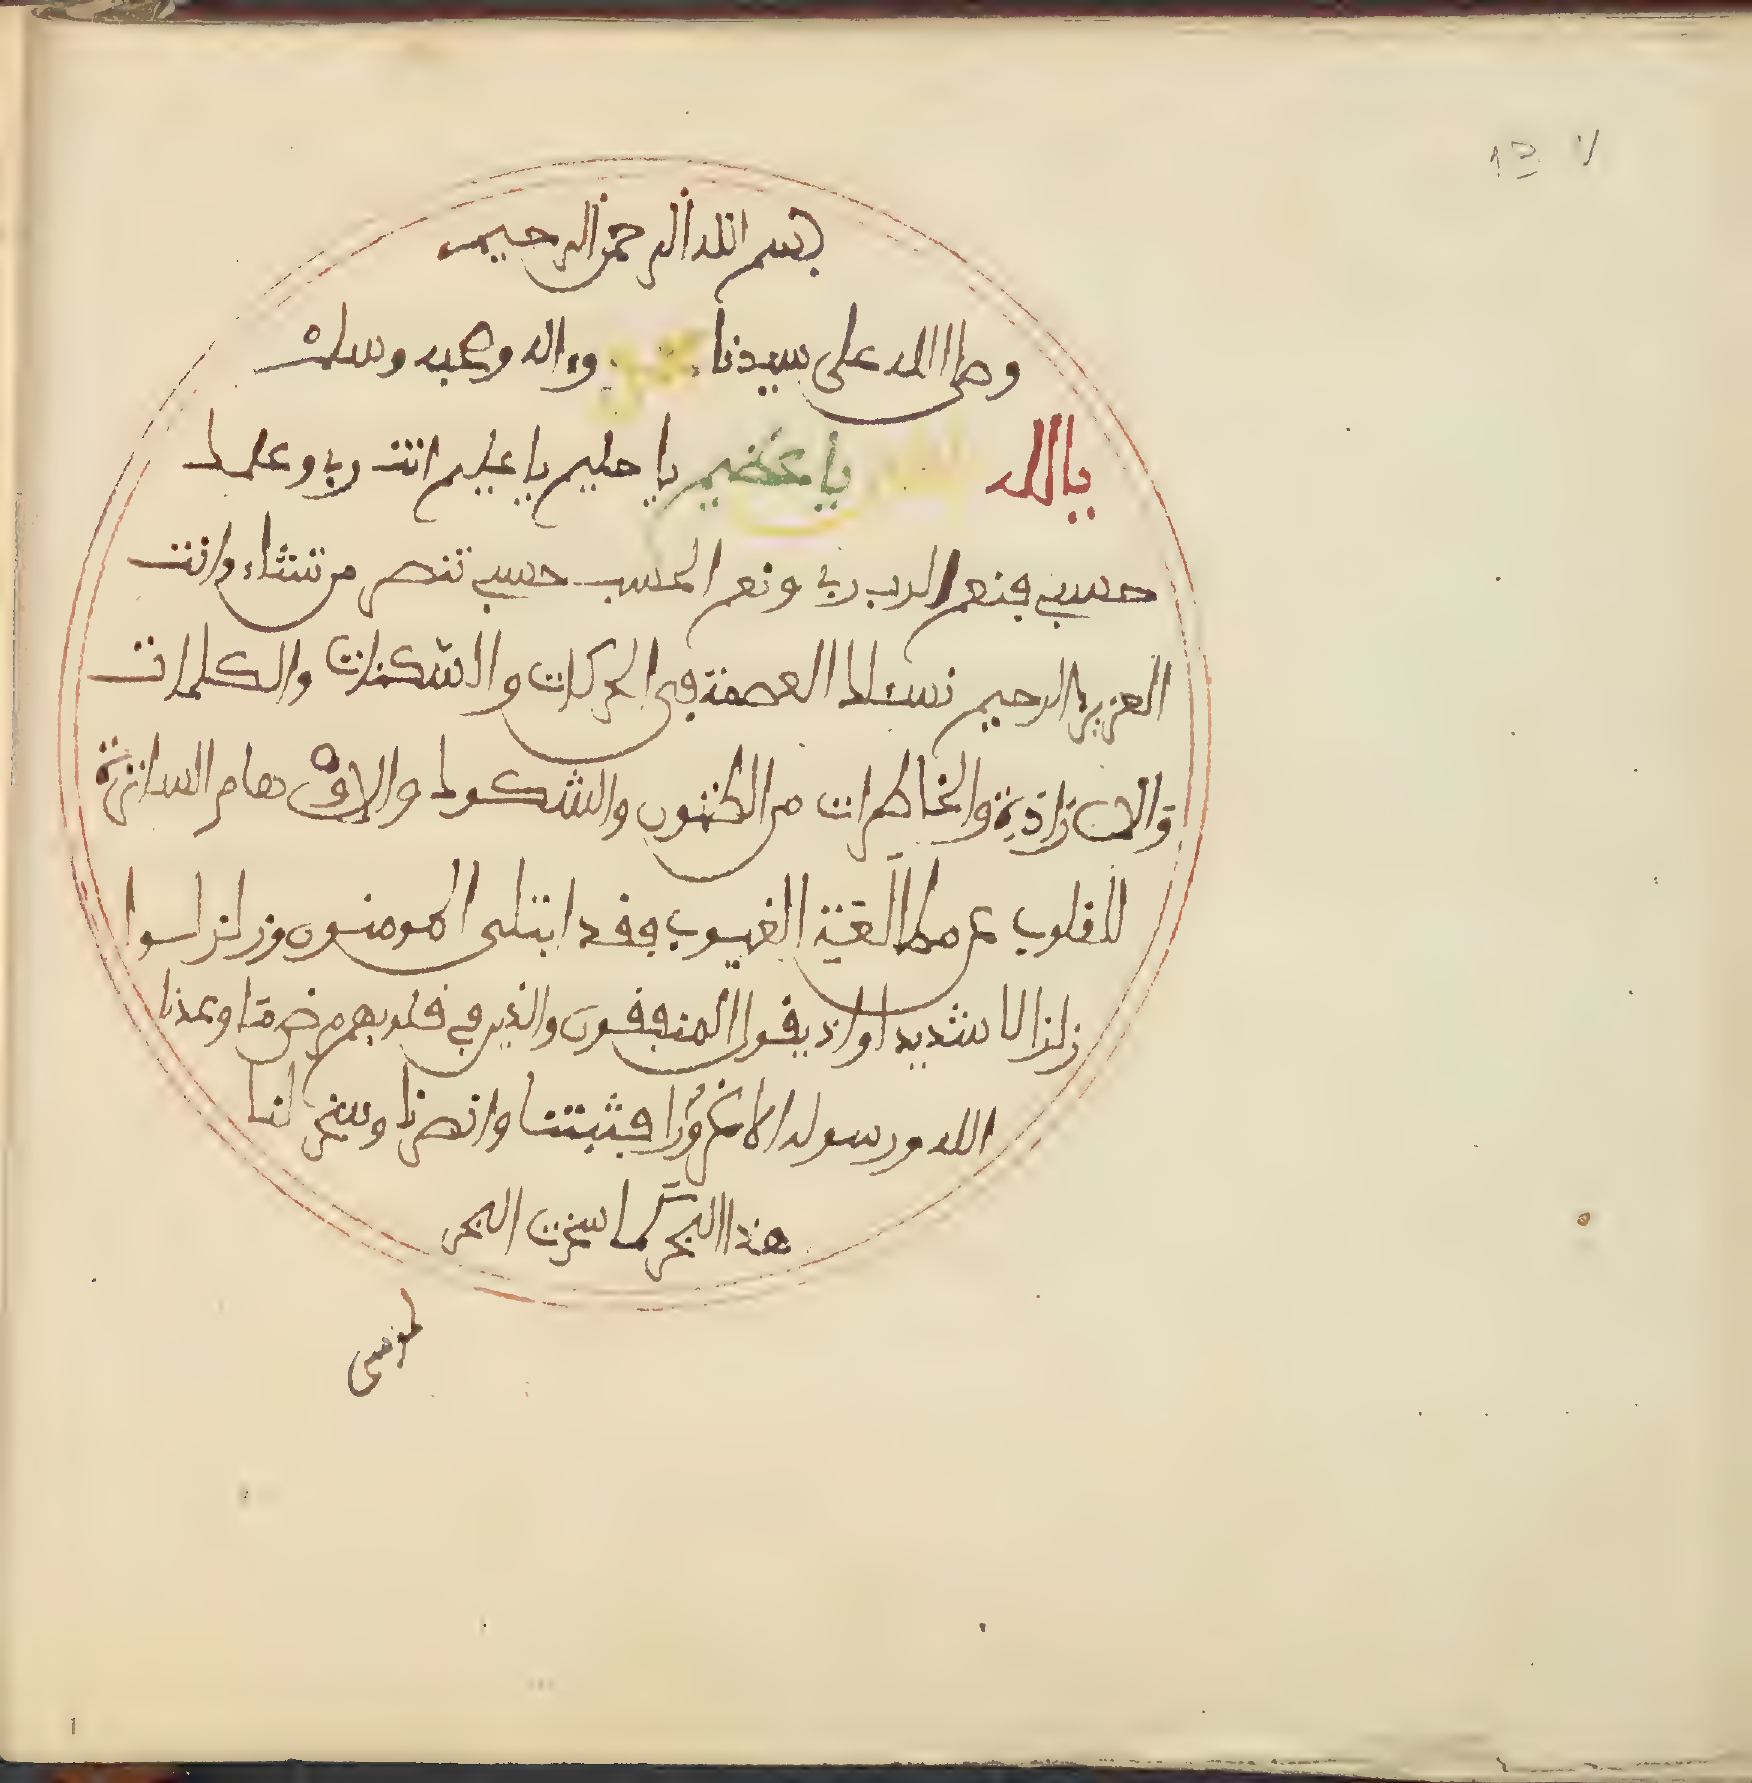 بسم الله الرحمن الرحيم
وصلى الله على سيدنا محمد وءاله وصحبه وسلم
يا الله يا عظيم يا حليم يا عليم انت رب وعلمك
حسبي فنعم الرب ربي ونعم الحسب حسبي تنصر من تشاء وانت
العزيز الرحيم نسئلك العصمة في الحركات والسكنات والكلمات
والارادة والخاطرات من الظنون والشكوك والاوهام الساترة
للقلوب عن مطالعة الغيوب فقد ابتلي المومنون وزلزلوا
زلزالا شديدا واذ يقول المنفقون والذين في قلوبهم مرض ما وعدنا
الله ورسوله الا غرورا فثبتنا وانصرنا وسخر لنا
هذا البحر كما سخرت البحر
لموسى
1